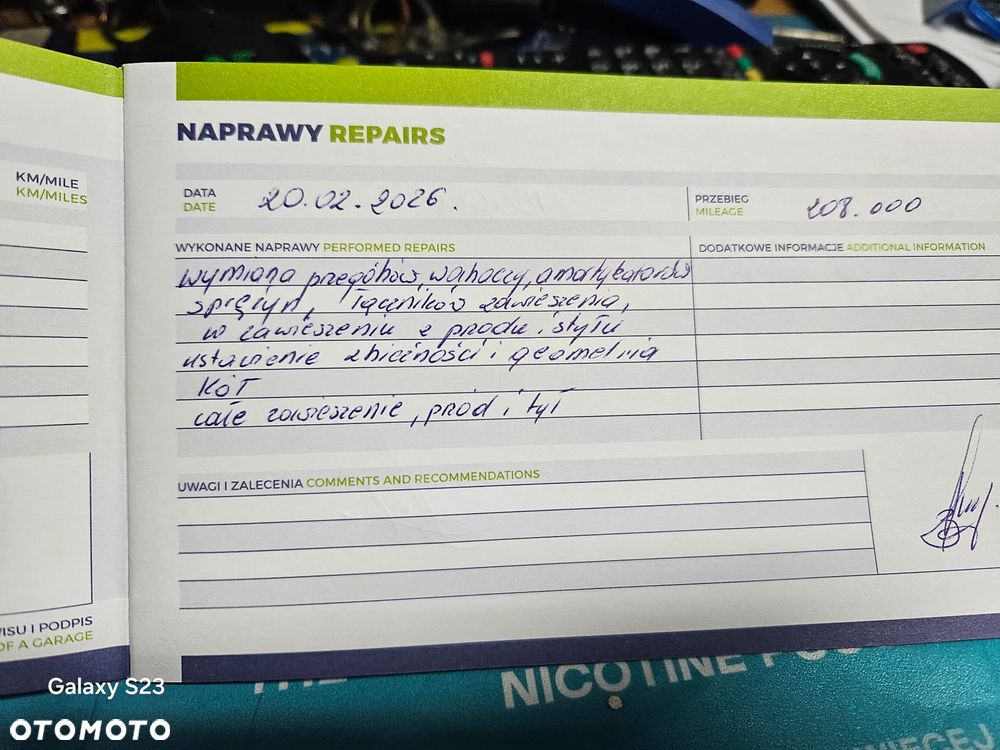 KM/MILE
KM/MILES
NAPRAWY REPAIRS
DATA 20.02.2026.
DATE
PRZEBIEG 208.000
MILEAGE
WYKONANE NAPRAWY PERFORMED REPAIRS
DODATKOWE INFORMACJE ADDITIONAL INFORMATION
wymiana przegóbów, wahaczy, amortyzatorów
sprężyn, łączników zawieszenia,
w zawieszeniu z przodu i tyłu
ustawienie zbieżności i geometria
kół
całe zawieszenie, przód i tył
UWAGI I ZALECENIA COMMENTS AND RECOMMENDATIONS
WISU I PODPIS
OF A GARAGE
NICOTINE
Galaxy S23
OTOMOTO